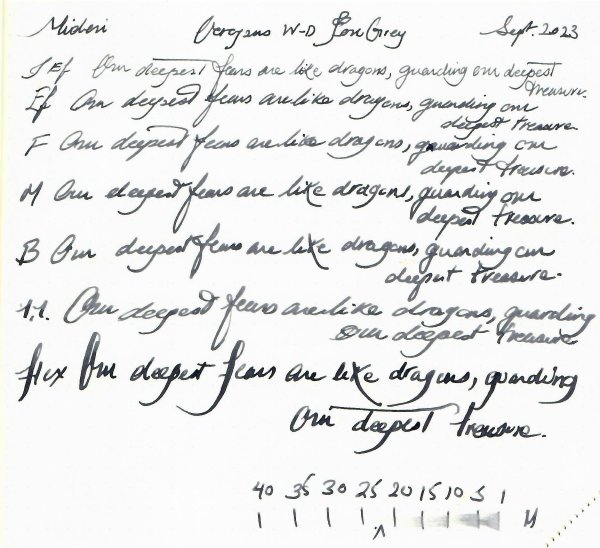 Midori Vergans W-D Son Grey Sept. 2023
JEf Our deepest fears are like dragons, guarding our deepest
treasure.
Ef Our deepest fears are like dragons, guarding our
deepest treasure.
F Our deepest fears are like dragons, guarding our
deepest treasure.
M Our deepest fears are like dragons, guarding our
deepest treasure.
B Our deepest fears are like dragons, guarding our
deepest treasure.
1.1. Our deepest fears are like dragons, guarding
our deepest treasure
flex Our deepest fears are like dragons, guarding
our deepest treasure.
40 35 30 25 20 15 10 5 1
M